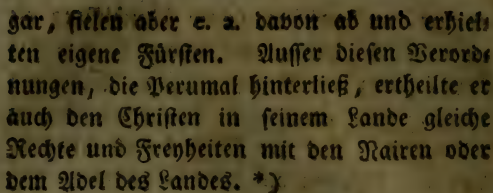 gar, fielen aber e. a. davon ab und erhiel-
ten eigene Fürsten. Ausser diesen Verord-
nungen, die Perumal hinterließ, ertheilte er
auch den Christen in seinem Lande gleiche
Rechte und Freyheiten mit den Nairen oder
dem Adel des Landes. *)